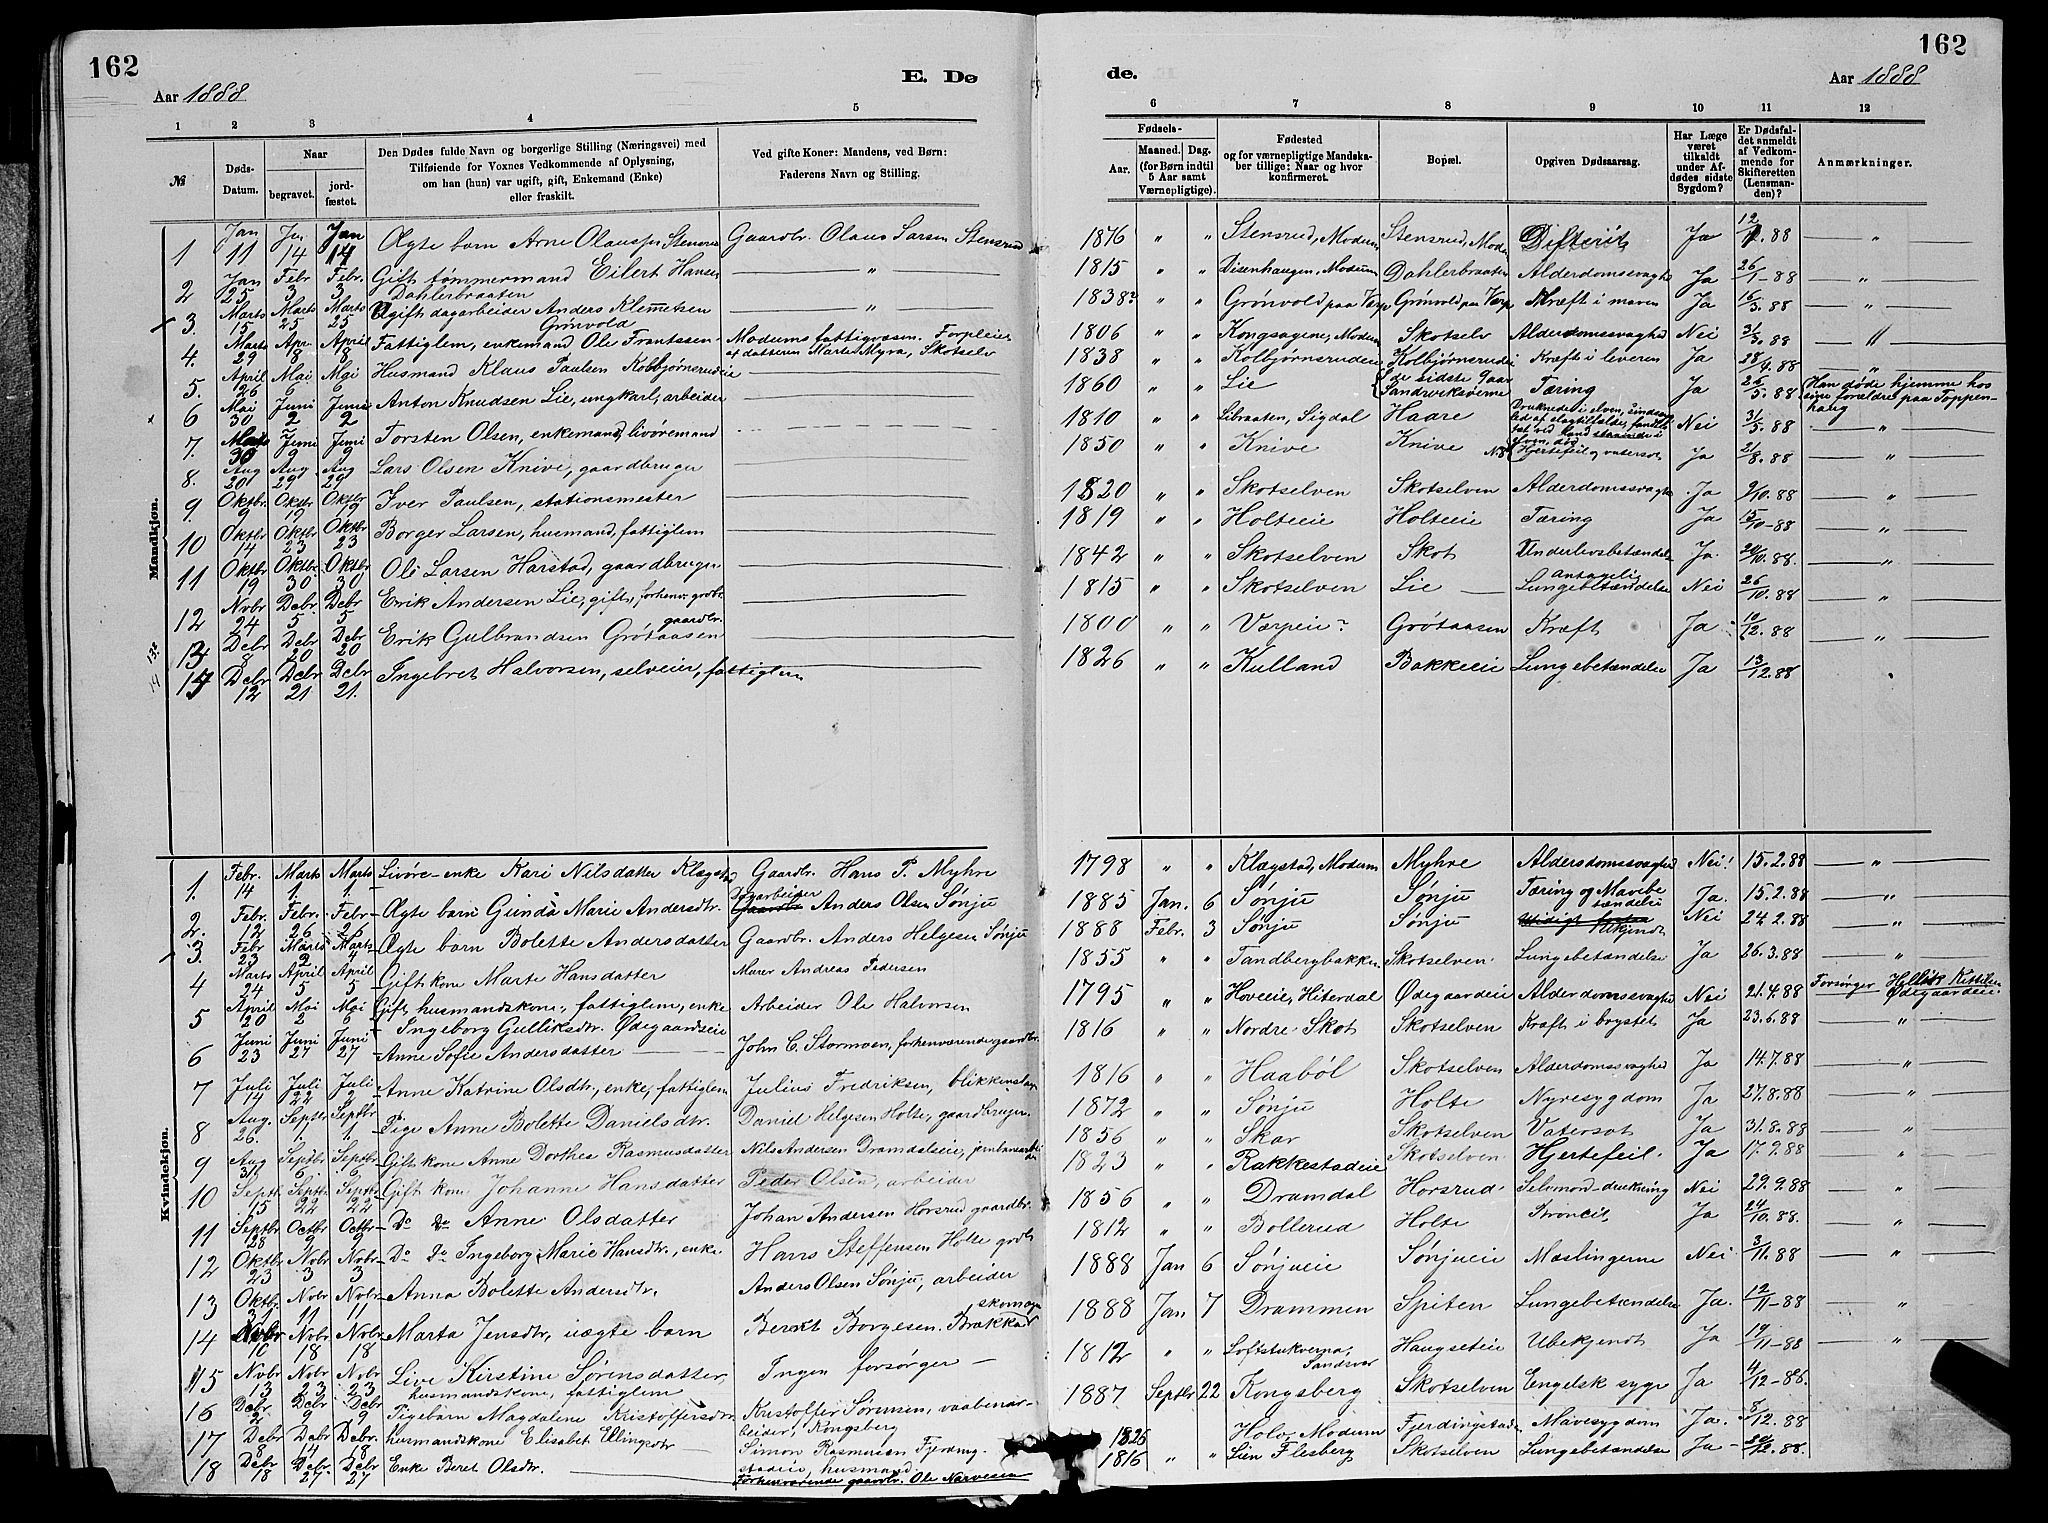 162
162
E. Dø
de.
Aar 1888
Aar 1888
1 2 3 4 5
6 7 8 9 10 11 12
№
Døds-Datum.
Naar
begravet.
jordfæstet.
Den Dødes fulde Navn og borgerlige Stilling (Næringsvei) med
Tilføiende for Voxnes Vedkommende af Oplysning,
om han (hun) var ugift, gift, Enkemand (Enke)
eller fraskilt.
Ved gifte Koner: Mandens, ved Børn:
Faderens Navn og Stilling.
Fødsels-
Aar.
Maaned. Dag.
(for Børn indtil
5 Aar samt
Værnepligtige).
Fødested
og for værnepligtige Mandska-
ber tillige: Naar og hvor
konfirmeret.
Bopæl.
Opgiven Dødsaarsag.
Har Læge
været
tilkaldt
under Af-
dødes sidste
Sygdom?
Er Dødsfal-
det anmeldt
af Vedkom-
mende for
Skifteretten
(Lensman-
den)?
Anmærkninger.
Mandkjøn.
1 Jan 11 Jan 14 Jan 14 Ægte barn Arne Olaussen Gaardbr. Olaus Larsen Stensrud 1876 " " Stensrud, Modum Stensrud, Difterit Ja 12/1. 88 "
2 Jan 25 Febr 3 Febr. 3 Gift tømmermand Eilert Hansen Dahlerbraaten " 1815 " " Disenhaugen, Modum Dahlerbraaten Alderdomssvaghed Ja 26/1. 88 "
3. Marts 15 Marts 25 Marts 25 Ugift dagarbeider Anders Klemetsen Grönvold " 1838? " " Grönvold paa Værp Grönvold paa Værp Kræft i maven Ja 16/3. 88 "
4. Marts 29 Apr. 8 April 8 Fattiglem, enkemand Ole Frantssen Modums fattigvæsen. Forpleies af datteren Marte Myra, Skotselv 1806 " " Kongsagene, Modum Skotselv Alderdomssvaghed Nei 31/3. 88 "
5. April 26 Mai 6 Mai 6 Husmand Klaus Paulsen Kolbjørnsrudeie 1838 " " Kolbjørnsrudeie Kolbjørnsrudeie Kræft i leveren Ja 28/4. 88 "
6 Mai 30 Juni 2 Juni 2 Anton Knudsen Lie, ungkarl, arbeider 1860 " " Lie de sidste 9 aar Sandviksverne Tæring Ja 26/5. 88 Han döde hjemme hos sine forældre paa Toppenhaug
7. Marts 30 Juni 9 Juni 9 Torsten Olsen, enkemand, livöremand 1810 " " Libraaten, Sigdal Haare Druknede i elven, Nei 31/5. 88 "
8. Aug 20 Aug 29 Aug 29 Lars Olsen Knive, gaardbruger 1850 " " Knive Knive Hjertefeil og vatersot Ja 21/8. 88 "
9. Oktbr 9 Oktbr 19 Oktbr 19 Iver Paulsen, stationsmester 1820 " " Skotselven Skotselven Alderdomssvaghed Ja 9/10. 88 "
10 Oktbr 14 Oktbr 23 Oktbr 23 Borger Larsen, husmand, fattiglem 1819 " " Holteeie Holteeie Tæring Ja 15/10-88 "
11 Oktbr 19 Oktbr. 30 Oktbr 30 Ole Larsen Harstad, gaardbruger 1842 " " Skotselven Skot Underlivsbetændelse Ja. 20/10. 88. "
12 Novbr 24 Decbr. 5 Decbr 5 Erik Andersen Lie, gift, forhenv. grdbr. 1815 " " Skotselven Lie antagelig Lungebetændelse Nei 26/10. 88 "
13 Decbr 8 Decbr 20 Decbr 20 Erik Gulbrandsen Grötaasen gaardbr. 1800 " " Værpeie? Grötaasen Kræft Ja 10/12. 88 "
14 Decbr 12 Decbr 21 Decbr 21. Ingebret Halvorsen, selveier, fattiglem 1826 " " Kulland Bakkeeie Lungebetændelse Ja 13/12. 88 "
Kvindekjøn.
1. Febr. 14 Marts 1. Marts 1. Livöre-enke Kari Nilsdatter Klægstad Gaardbr. Hans P. Myhre 1798 " " Klægstad, Modum Myhre Aldersdomssvaghed Nei! 15.2.88 "
2. Febr. 12 Febr. 26 Febr Ægte barn Gunda Marie Andersdtr. Dagarbeider Anders Olsen Sönju 1885 Jan. 6 Sönju Sönju Tæring og Mavebetændelse Ja. 15.2.88 "
3. Febr 23 Marts 2 Marts 4 Ægte barn Bolette Andersdatter Gaardbr. Anders Helgesen Sönju 1888 Febr. 3 Sönju Sönju Ubekjendt Nei 24.2.88 "
4 Marts 24 April 5 April 5 Gift kone Marte Hansdatter Murer Andreas Pedersen 1855 " " Tandbergbakken Skotselven Lungebetændelse Ja 26.3.88 "
5 April 20 Mai 2 Mai 6 Gift, husmandskone, fattiglem, enke Ingeborg Gulliksdtr. Ödegaardseie Arbeider Ole Halvorsen 1795 " " Hoveeie, Hiterdal Ödegaardeie Alderdomssvaghed Nei 21.4.88 Forsörger Hellik Kittilsen Ödegaardeie.
6 Juni 23 Juni 27 Juni 27 Anne Sofie Andersdatter John C. Stormoen, forhenværende gaardbr. 1816 " " Nordre Skot Skotselven Kræft i brystet Ja 23.6.88 "
7 Juli 14 Juli 22 Juli 2 Anne Katrine Olsdtr., enke, fattiglem Julius Fredriksen, blikkenslager 1816 " " Haaböl Skotselven Alderdomssvaghed Ja 14.7.88 "
8 Aug. 26. Septbr. 1. Septbr 1 Pige Anne Bolette Danielsdtr. Daniel Helgesen Holte, gaardbruger 1872 " " Sönju Holte Nyresygdom Ja 27.8.88 "
9 Aug 31 Septbr 6 Septbr 6 Gift kone Anne Dorthea Rasmusdatter Nils Andersen Dramdaleie, jernbanearbeider 1856 " " Skar Skotselven Vatersot Ja 31.8.88 "
10 Septbr 15 Septbr. 22 Septbr. 22 Gift kone Johanne Hansdatter Peder Olsen, arbeider 1823 " " Rakkestadeie Skotselven Hjertefeil. Ja 17.9.88 "
11 Septbr 28 Octbr 9 Octbr 9 Do Do Anne Olsdatter Johan Andersen Horsrud gaardbr. 1856 " " Dramdal Horsrud Selvmord-drukning Nei 29.9.88 "
12 Oktbr 23 Novbr 3 Novbr. 3 Do Do Ingeborg Marie Hansdtr., enke Hans Steffensen Holte grdbr 1812 " " Bollerud Holte Ja 24/10. 88. "
13 Oktbr 31 Novbr 11 Novbr 11. Anna Bolette Andersdtr. Anders Olsen Sönju, arbeider 1888 Jan 6 Sönjueie Sönjueie Mæslingerne Nei 3/11. 88 "
14 Novbr 10 Novbr 18 Novbr 18 Marta Jensdtr, uægte barn Berset Borgesen Brakka skomager 1888 Jan 7 Drammen Spiten Lungebetændelse Ja. 12/11-88 "
15 Novbr 13 Novbr 23 Novbr 23 Live Kirstine Sörensdatter, husmandskone, fattiglem Ingen forsörger 1812 " " Loftstukverna, Sandsvær Haugseteie Ubekjendt Ja 19/11-88 "
16 Decbr 2 Decbr 9 Decbr. 9 Pigebarn Magdalene Kristoffersdtr. Kristoffer Sörensen, vaabenarbeider, Kongsberg 1887 Septbr 22 Kongsberg Skotselven Engelsk syge Ja 4/12-88.
17 Decbr 8 Decbr 14 Decbr. 18 husmandskone Elisabet Ellingsdtr Simon Rasmusen Fjerdingstadeie, husmand. 1826 Holo, Modum Fjerdingstad Mavesygdom Ja. 8/12. 88
18 Decbr 18 Decbr. 27 Decbr 27 Enke Beret Olsdtr. Forhenværende gaardbr. Ole Narvesen 1816 " " Lien Flesberg Skotselven Lungebetændelse Ja 20/12. 88.